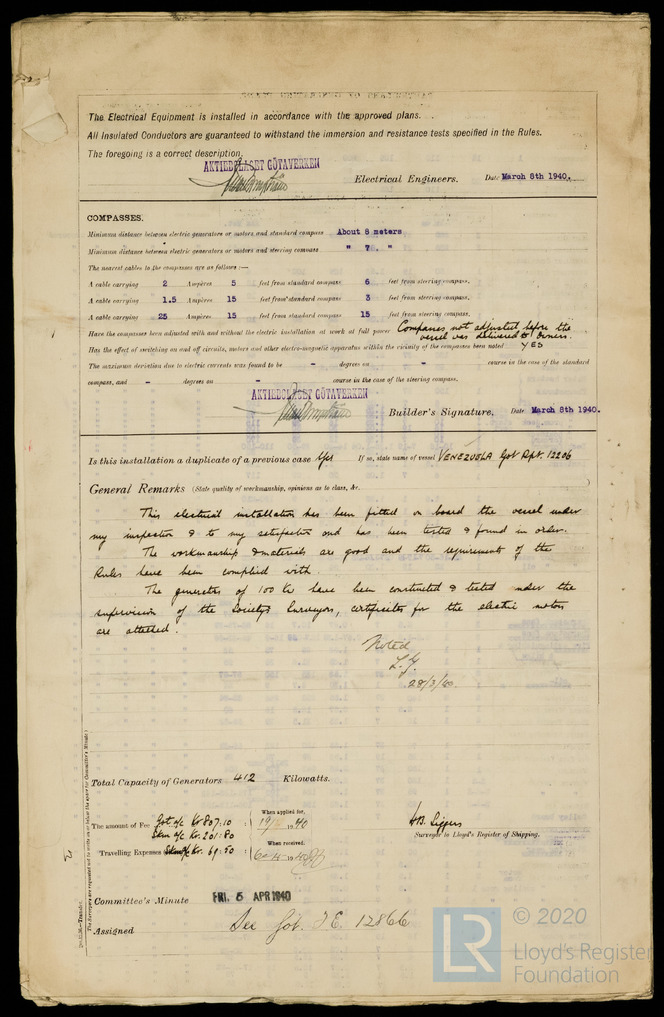 The Electrical Equipment is installed in accordance with the approved plans.
All Insulated Conductors are guaranteed to withstand the immersion and resistance tests specified in the Rules.
The foregoing is a correct description.
AKTIEBOLAGET GÖTAVERKEN
Electrical Engineers. Date March 8th 1940.
COMPASSES.
Minimum distance between electric generators or motors and standard compass About 8 meters
Minimum distance between electric generators or motors and steering compass " 7. "
The nearest cables to the compasses are as follows:—
A cable carrying 2 Ampères 5 feet from standard compass 6 feet from steering compass.
A cable carrying 1.5 Ampères 15 feet from standard compass 3 feet from steering compass.
A cable carrying 25 Ampères 15 feet from standard compass 15 feet from steering compass.
Have the compasses been adjusted with and without the electric installation at work at full power Compasses not adjusted before the
vessel was delivered to Owners.
Has the effect of switching on and off circuits, motors and other electro-magnetic apparatus within the vicinity of the compasses been noted YES
The maximum deviation due to electric currents was found to be - degrees on - course in the case of the standard
compass, and - degrees on - course in the case of the steering compass.
AKTIEBOLAGET GÖTAVERKEN
Builder's Signature. Date March 8th 1940.
Is this installation a duplicate of a previous case Yes If so, state name of vessel VENEZUELA Got Rpt. 12206
General Remarks (State quality of workmanship, opinions as to class, &c.)
This electrical installation has been fitted on board the vessel under
my inspection & to my satisfaction and has been tested & found in order.
The workmanship & materials are good and the requirements of the
Rules have been complied with.
The generators of 100 Kw have been constructed & tested under the
supervision of the Society's Surveyors, certificates for the electric motors
are attached.
Noted
28/3/40.
Total Capacity of Generators 412 Kilowatts.
The amount of Fee Got. a/c Kr 807:10
Skm a/c Kr. 201:80
When applied for,
1940
Travelling Expenses Kr. 69:50
When received,
Surveyor to Lloyd's Register of Shipping.
Committee's Minute FRI. 5 APR 1940
Assigned See Got. F.E. 12866
The Surveyors are requested not to write on or below the space for Committee's Minute.
© 2020
LR
Lloyd's Register
Foundation